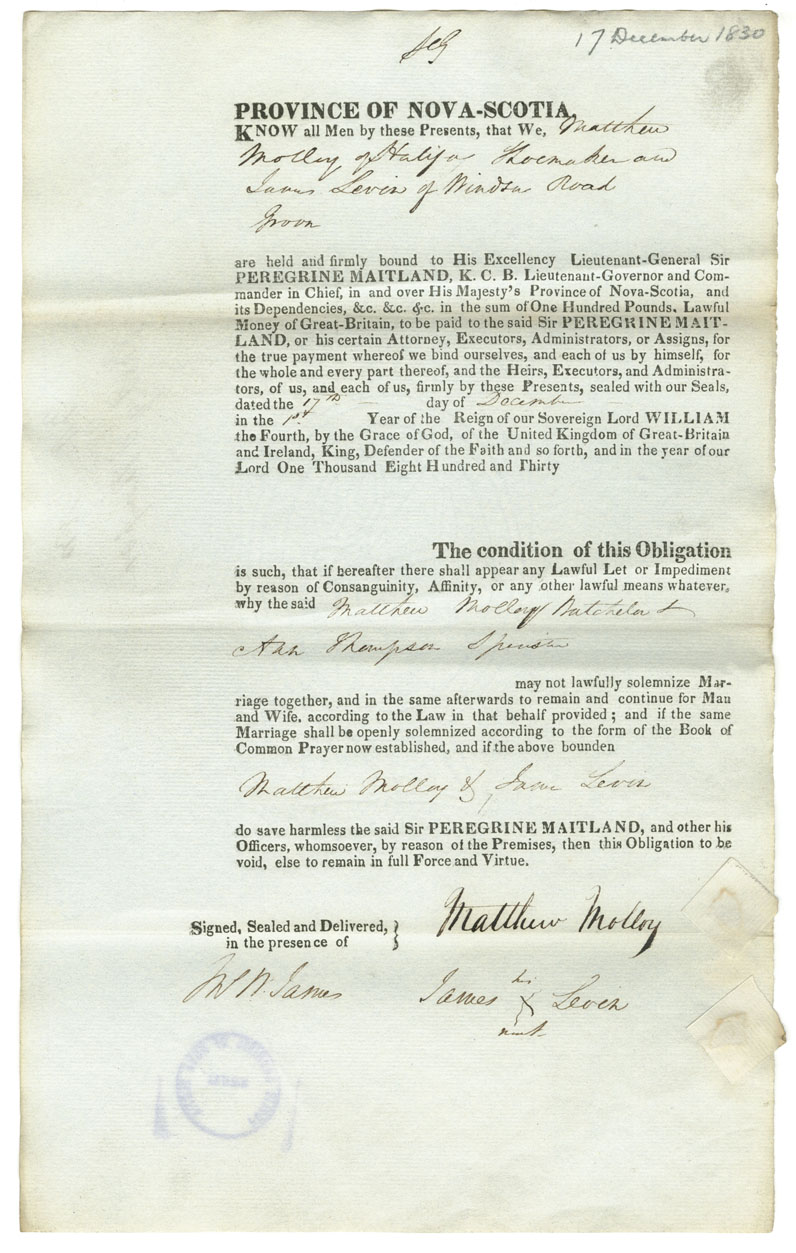 17 December 1830
PROVINCE OF NOVA-SCOTIA,
KNOW all Men by these Presents, that We, Matthew
Molloy of Halifax Shoemaker and
James Levin of Windsor Road
Groom
are held and firmly bound to His Excellency Lieutenant-General Sir
PEREGRINE MAITLAND, K. C. B. Lieutenant-Governor and Com-
mander in Chief, in and over His Majesty's Province of Nova-Scotia, and
its Dependencies, &c. &c. &c. in the sum of One Hundred Pounds, Lawful
Money of Great-Britain, to be paid to the said Sir PEREGRINE MAIT-
LAND, or his certain Attorney, Executors, Administrators, or Assigns, for
the true payment whereof we bind ourselves, and each of us by himself, for
the whole and every part thereof, and the Heirs, Executors, and Administra-
tors, of us, and each of us, firmly by these Presents, sealed with our Seals,
dated the 17th day of December
in the 1st Year of the Reign of our Sovereign Lord WILLIAM
the Fourth, by the Grace of God, of the United Kingdom of Great-Britain
and Ireland, King, Defender of the Faith and so forth, and in the year of our
Lord One Thousand Eight Hundred and Thirty
The condition of this Obligation
is such, that if hereafter there shall appear any Lawful Let or Impediment
by reason of Consanguinity, Affinity, or any other lawful means whatever,
why the said Matthew Molloy Batchelor &
Ann Thompson Spinster
may not lawfully solemnize Mar-
riage together, and in the same afterwards to remain and continue for Man
and Wife, according to the Law in that behalf provided; and if the same
Marriage shall be openly solemnized according to the form of the Book of
Common Prayer now established, and if the above bounden
Matthew Molloy & James Levin
do save harmless the said Sir PEREGRINE MAITLAND, and other his
Officers, whomsoever, by reason of the Premises, then this Obligation to be
void, else to remain in full Force and Virtue.
Signed, Sealed and Delivered, }
in the presence of
Matthew Molloy
James his X Levin
mark
James